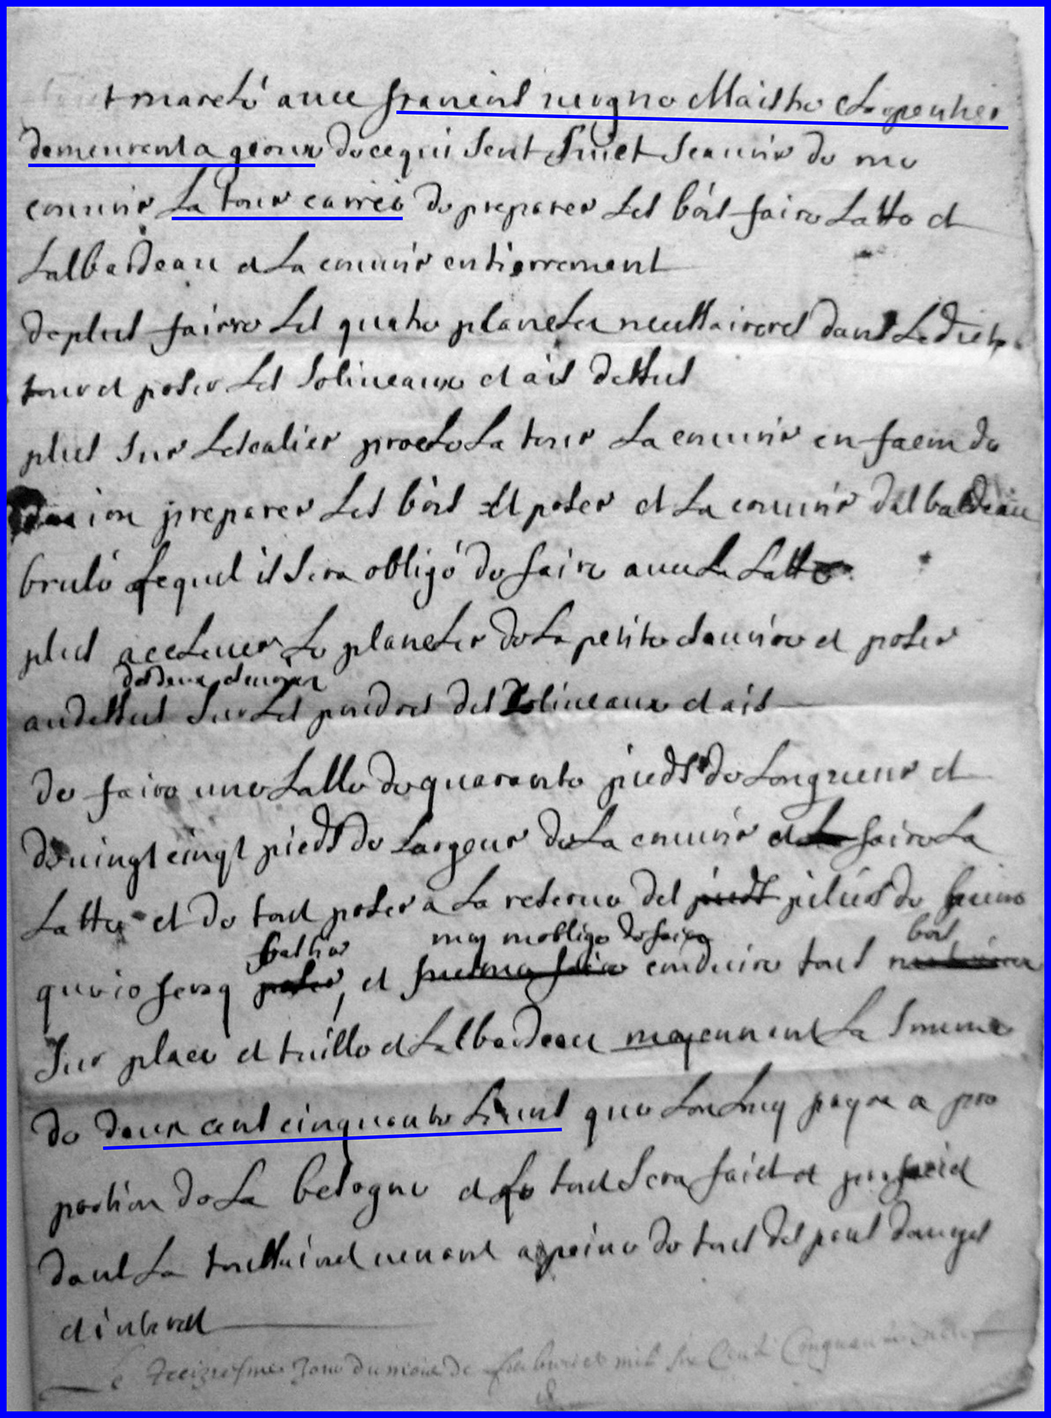 t marché auec francois mogno Maistre Charpentier
demeurent a geour de ce qui sent suiet scauoir de me
couurir La tour carrée de preparer Les bois faire Latte et
Lalbardeau et La couurir entierrement
de plus fairre Les quatre plancher neccessaires dans Ledicte
tour et poser Les solineaux et ais dessus
plus sur Lescalier proche La tour La couurir en facon de
preparer Les bois et poser et La couurir dalbardeau
brulé lequel il sera obligé de faire auec La Latte
plus acheuer Le plancher de La petite chambre et poser
des deux chambres
au dessus sur Les poudres des solineaux et ais
de faire une salle de quarante pieds de Longueur et
de uingt cinqt pieds de Largeur de La couurir et La faire La
Latte et de tout poser a La reserue des pieds piliés de
moy mobligé de faire bois
quil poser, et conduire tout
sur place et tuille et Lalbardeau moyennant La somme
de deux cent cinquante Liures que Lon Luy payra a pro
portion de La besogne et Le tout sera faict et parfaict
dans La toussainct uenant a peine de tous despens domages
et interest
Le treiziesme Jour du mois de feburier mil six Cents Cinquante